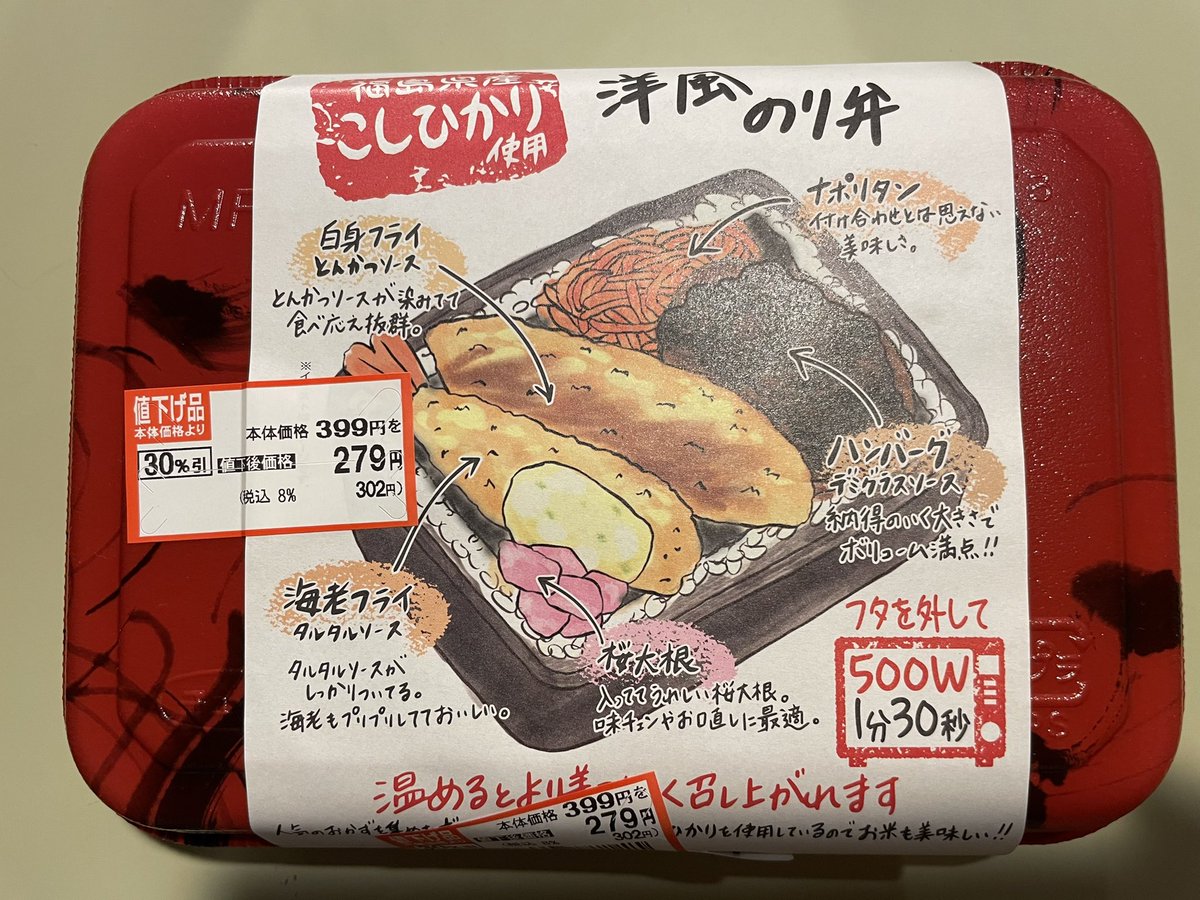 福島県産
こしひかり
使用
洋風のり弁
ナポリタン
付け合わせとは思えない
美味しさ。
白身フライ
とんかつソース
とんかつソースが染みてて
食べ応え抜群。
※
値下げ品
本体価格より
30%引
本体価格 399円を
値下後価格 279円
(税込 8% 302円)
ハンバーグ
デミグラスソース
納得のいく大きさで
ボリューム満点!!
海老フライ
タルタルソース
タルタルソースが
しっかりついてる。
海老もプリプリしてておいしい。
桜大根
入っててうれしい桜大根。
味チェンやお口直しに最適。
フタを外して
500W
1分30秒
温めるとより美
く召し上がれます
本体価格 399円を
値下後価格 279円
(税込 8% 302円)
人気のおかずを集め
ひかりを使用しているのでお米も美味しい!!